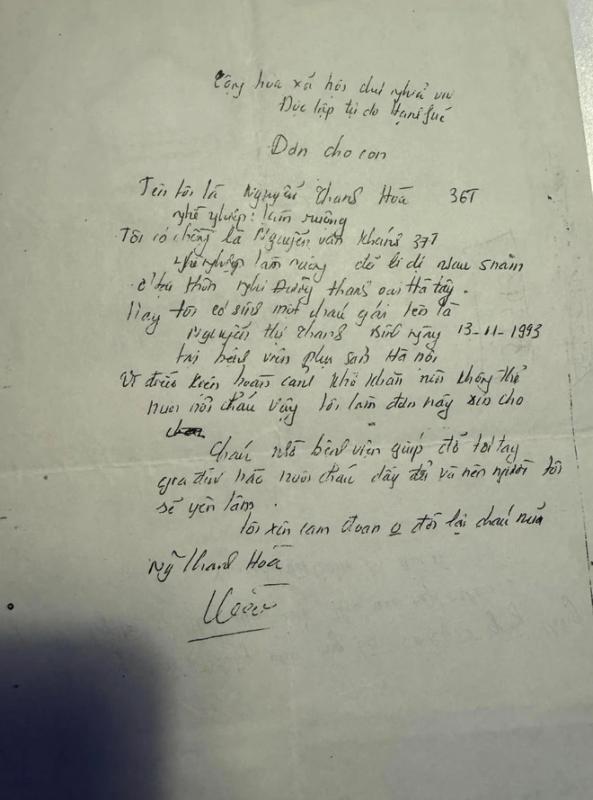 Cộng hòa xã hội chủ nghĩa VN
Độc lập tự do Hạnh fuć
Đơn cho con
Tên tôi là Nguyễn Thanh Hoà 36T
nghề nghiệp: làm ruộng
Tôi có chồng là Nguyễn văn Khánh 37T
nghề nghiệp làm ruộng đã li dị sau 5 năm
ở tại thôn nghi Đường thanh oai Hà tây.
Nay tôi có sinh một cháu gái tên là
Nguyễn thị thanh sinh ngày 13-11-1993
tại bệnh viện phụ sản Hà nôi
Vì điều kiện hoàn cảnh khó khăn nên không thể
nuôi nổi cháu vậy tôi làm đơn này xin cho
Cháu nhờ bệnh viện giúp đỡ tới tay
gia đình nào nuôi cháu dầy đủ và nên người tôi
sẽ yên tâm.
tôi xin cam đoan o đòi lại cháu nữa
Ng thanh Hoà